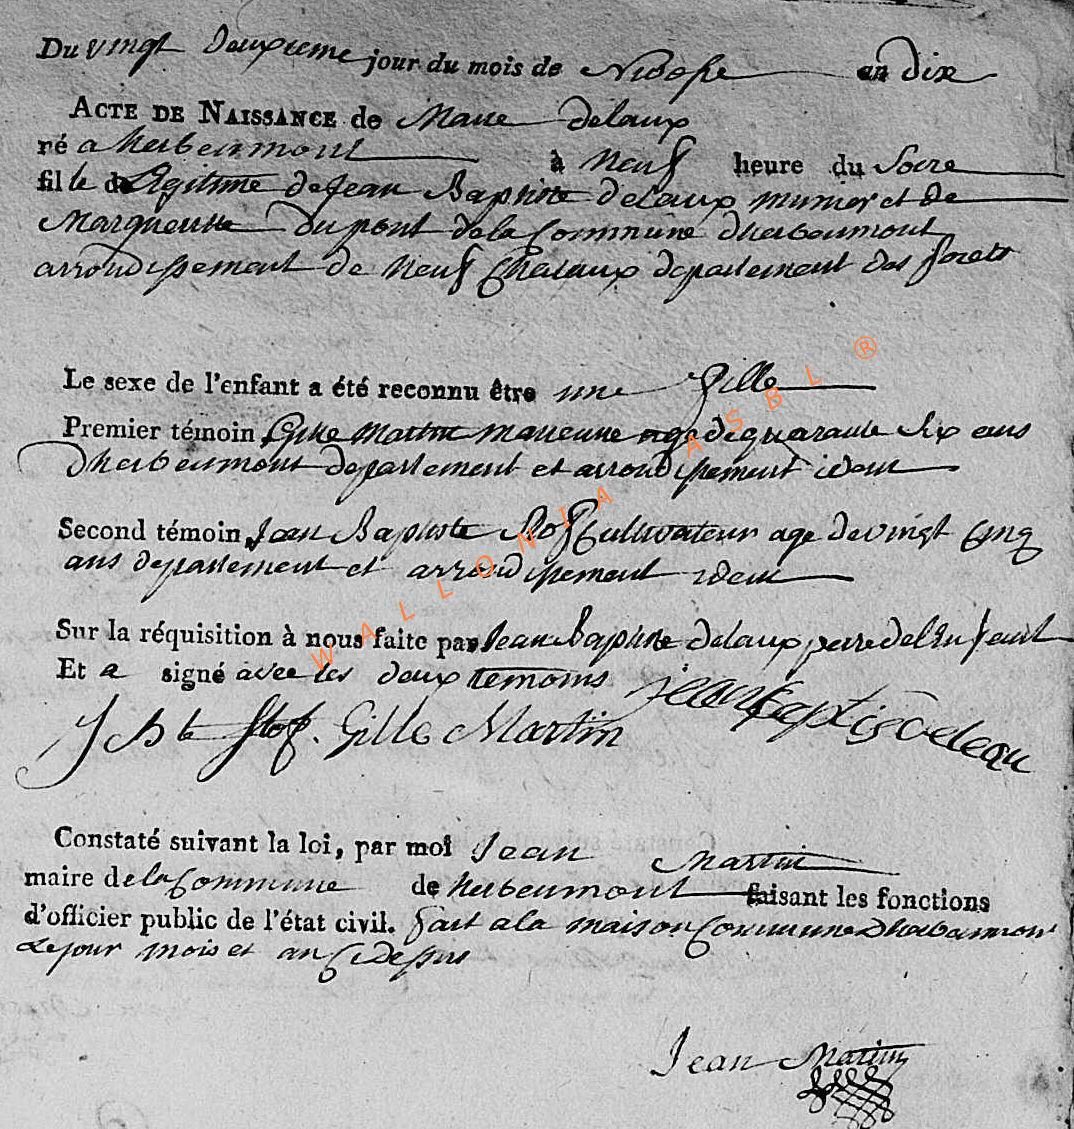 Du vingt deuxieme jour du mois de Nivose an dix
ACTE DE NAISSANCE de Marie delaux
né a herbeumont à neuf heure du Soire
fille de Legitime de Jean Baptiste delaux munier et de
Margueritte Dupont de la Commune dherbeumont
arrondissement de neuf Chataux departement des forets
Le sexe de l'enfant a été reconnu être une fille
Premier témoin Gille Martin age de quarante Six ans
dherbeumont departement et arrondissement idem
Second témoin Jean Baptiste Cultivateur age de vingt Cinq
ans departement et arrondissement idem
Sur la réquisition à nous faite par Jean Baptiste delaux pere de lEnfant
Et a signé avec les deux temoins
J Bte Gille Martin jean baptis deleau
Constaté suivant la loi, par moi Jean Martin
maire de la Commune de herbeumont faisant les fonctions
d'officier public de l'état civil. fait a la maison Commune dherbeumont
Le jour mois et an Cidessus
Jean Martin
WALLONIA ASBL ®